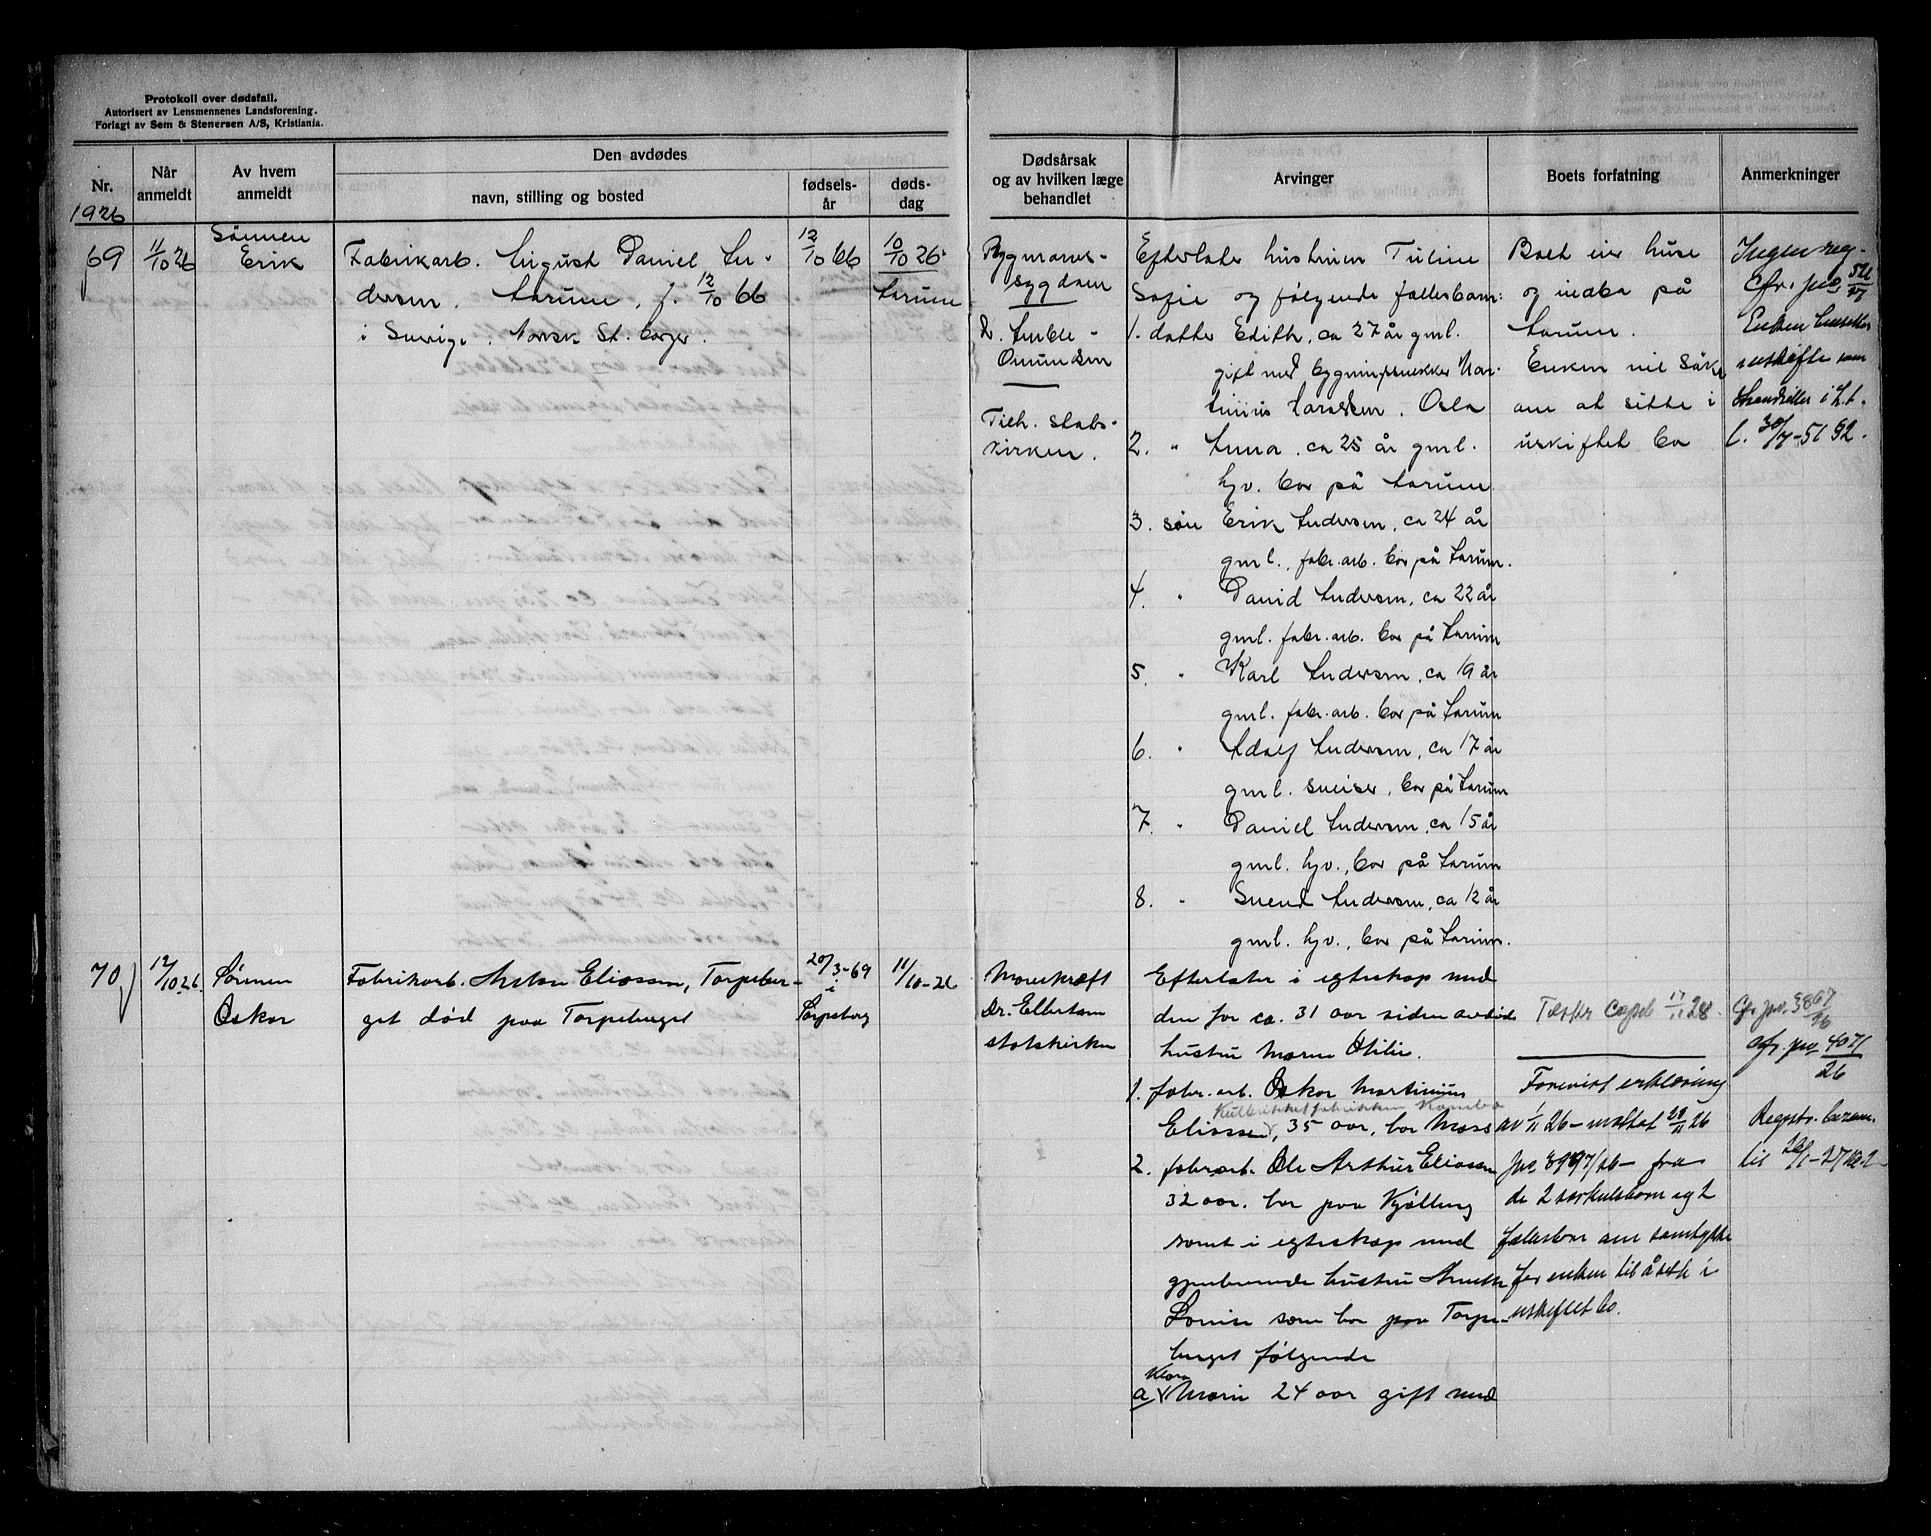 Protokoll over dødsfall.
Autorisert av Lensmennenes Landsforening.
Forlagt av Sem & Stenersen A/S, Kristiania.
Nr.
Når anmeldt
Av hvem anmeldt
Den avdødes
navn, stilling og bosted
fødselsår
dødsdag
Dødsårsak
og av hvilken læge
behandlet
Arvinger
Boets forfatning
Anmerkninger
1926
69
11/10 26
Sønnen
Erik
Fabrikarb. August Daniel An-
dersen, Aarum, f. 12/10 66
i Sverige. Norsk St. borger.
12/10 66
10/10 26.
Aarum
sygdom
Omundsen
Tilh. stats-
kirken.
Efterlater hustruen
Sofie og følgende fællesbarn:
1. datter Edith, ca 27 år gml.
gift med
Oslo
2. " Anna, ca 25 år gml.
hjv. bor på Aarum
3. søn Erik Andersen, ca 24 år
gml., fabr.arb. bor på Aarum.
4. " David Andersen, ca 22 år
gml. fabr.arb. bor på Aarum
5. " Karl Andersen, ca 19 år
gml. fabr.arb. bor på Aarum
6. " Adolf Andersen, ca 17 år
gml. sveiser, bor på Aarum
7. " Daniel Andersen, ca 15 år
gml. hjv., bor på Aarum
8. " Svend Andersen, ca 12 år
gml. hjv., bor på Aarum.
Boet eier huse
og indbo på
Aarum.
Enken vil søke
om at sitte i
uskiftet bo
Ingen reg.
Cfr. jno
Enken
uskifte som
i
30/7-51
70
12/10 26.
Sønnen
Oskar
Fabrikarb. Anton Eliassen, Torpeber-
get død paa Torpeberget
20/3-69
i
Sarpsborg
11/10-26
Dr.
statskirken
Efterlater i egteskap med
den for ca. 31 aar siden avdøde
hustru Maren Otilie.
1. fabr.arb. Oskar Martinius
Eliassen, 35 aar, bor Moss
2. fabrarb. Ole Arthur Eliassen
32 aar. bor paa Kjølberg
samt i egteskap med
gjenlevende hustru
Louise som bor paa Torpe-
berget følgende
Klara
a Marie 24 aar gift med
17/11 28.
Forevist erklæring
av 1/11 26 – mottat 29/11 26
fra
de 2 særkulsbarn og 2
fællesbarn om samtykke
for enken til å sitte i
uskiftet bo.
Cfr jno. 3867/26
Cfr. jno 4071/26
Registr.
til